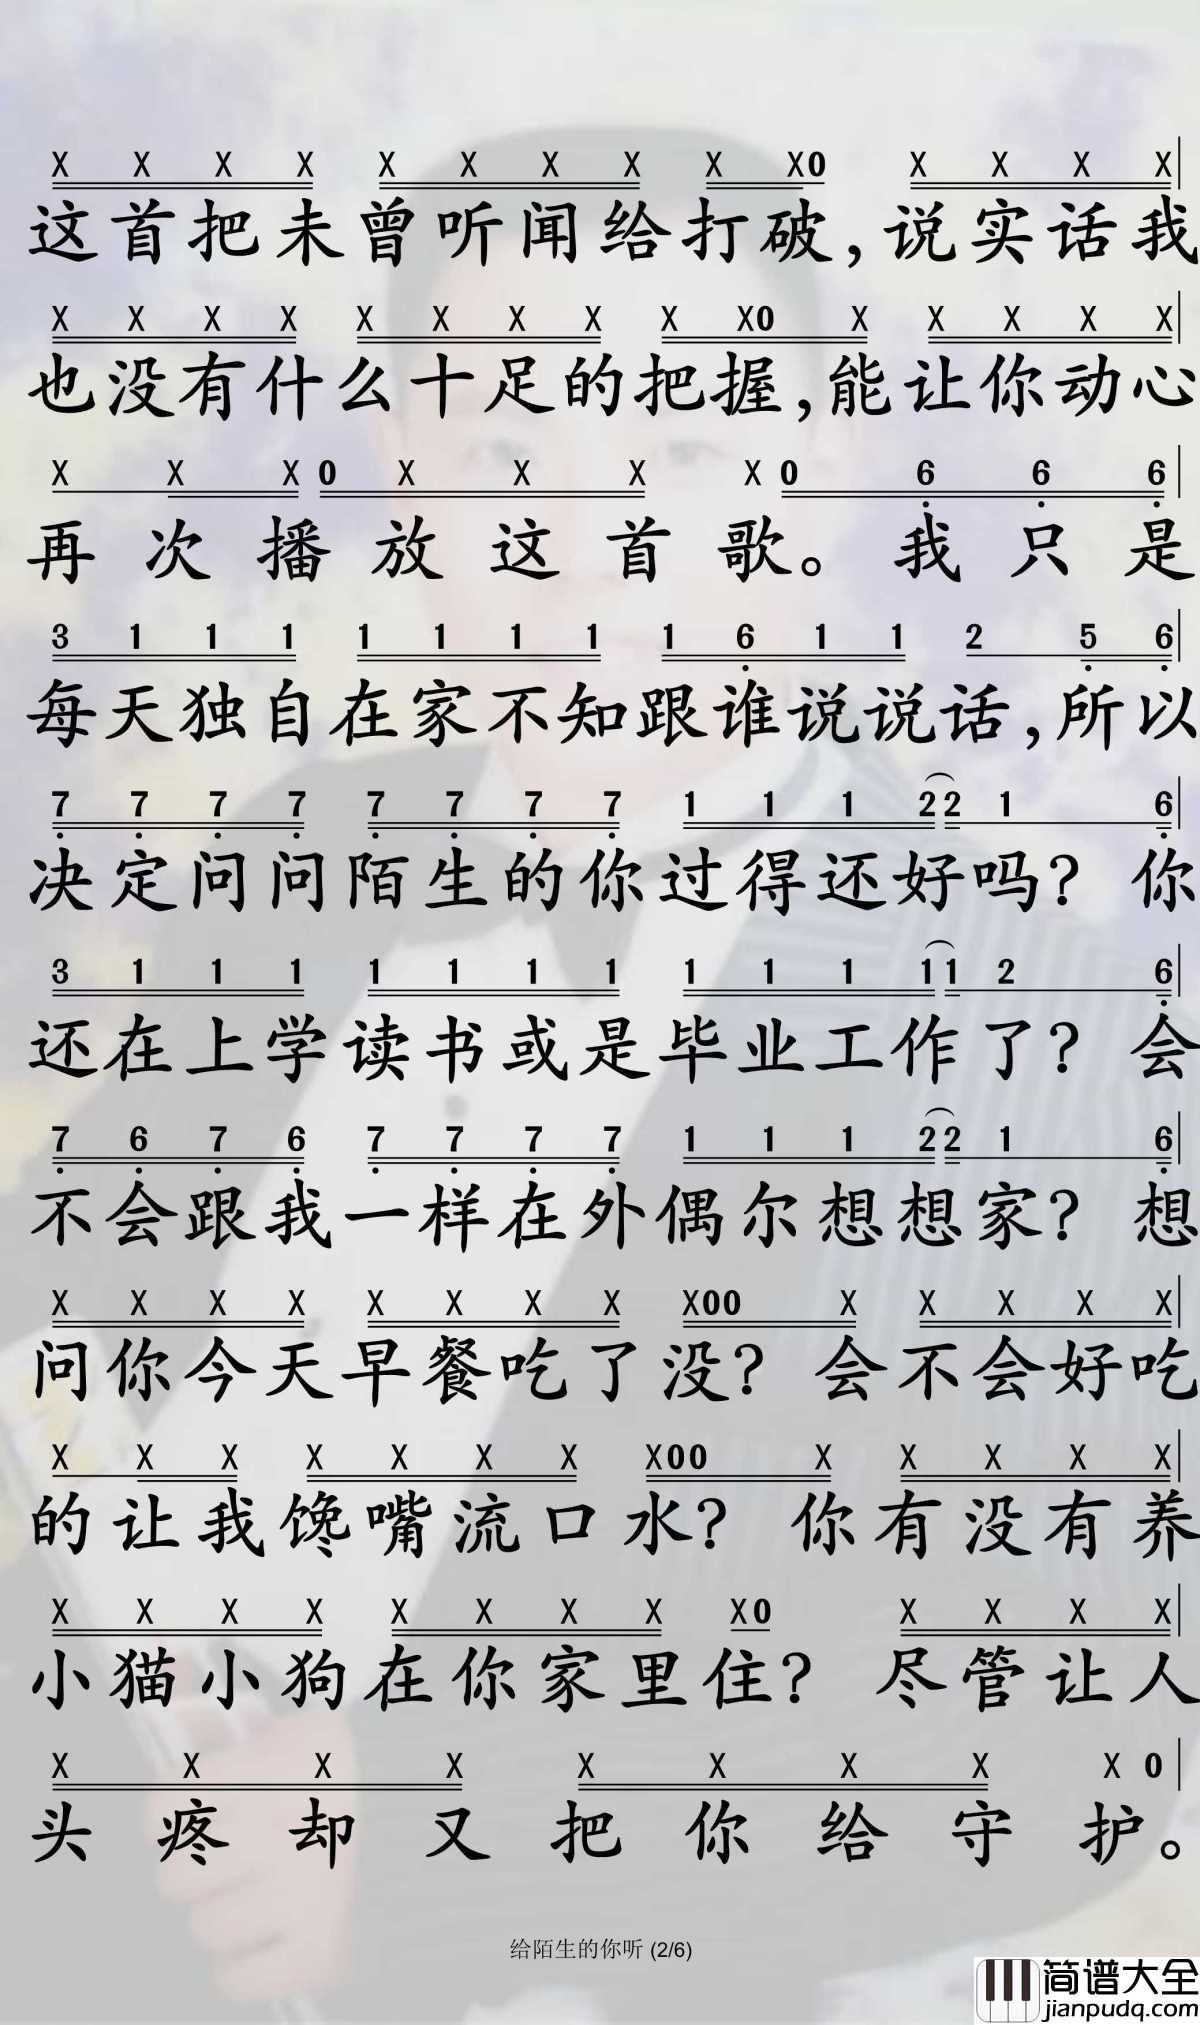 X X X X X X X X X X0 X X X X
这首把未曾听闻给打破,说实话我
X X X X X X X X X X0 X X X X X
也没有什么十足的把握,能让你动心
X X X 0 X X X X 0 6 6 6
再次播放这首歌。我只是
3 1 1 1 1 1 1 1 1 6 1 1 2 5 6
每天独自在家不知跟谁说说话,所以
7 7 7 7 7 7 7 7 1 1 1 2 2 1 6
决定问问陌生的你过得还好吗? 你
3 1 1 1 1 1 1 1 1 1 1 1 1 2 6
还在上学读书或是毕业工作了? 会
7 6 7 6 7 7 7 7 1 1 1 2 2 1 6
不会跟我一样在外偶尔想想家? 想
X X X X X X X X X00 X X X X X
问你今天早餐吃了没? 会不会好吃
X X X X X X X X00 X X X X X
的让我馋嘴流口水? 你有没有养
X X X X X X X X X0 X X X X
小猫小狗在你家里住? 尽管让人
X X X X X X X X X 0
头疼却又把你给守护。
给陌生的你听 (2/6)
简谱大全
jianpudq.com